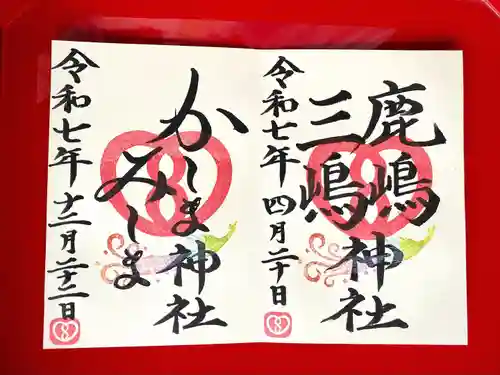 鹿嶋
三嶋
神社
令和七年四月二十日
かしま
みしま
神社
令和七年十二月二十二日